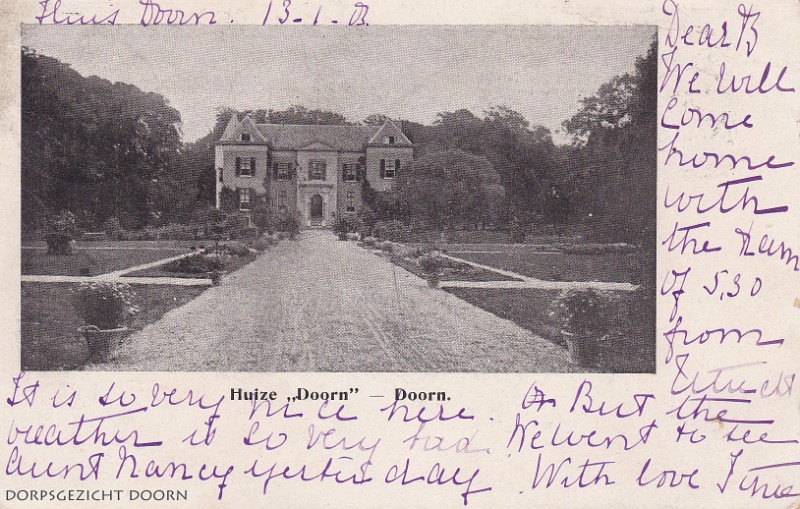 Huis Doorn. 13-1-
Dear B
We will
come
home
with
the tram
of 5,30
from
Utrecht
Huize „Doorn” — Doorn.
It is so very nice here. But the
weather is so very bad. We went to see
aunt Nancy yesterday. With love
DORPSGEZICHT DOORN